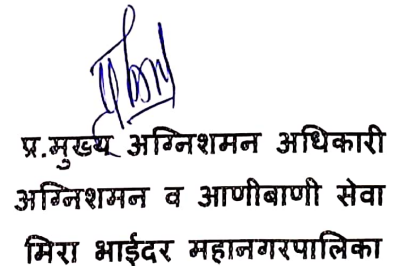 प्र.मुख्य अग्निशमन अधिकारी
अग्निशमन व आणीबाणी सेवा
मिरा भाईंदर महानगरपालिका